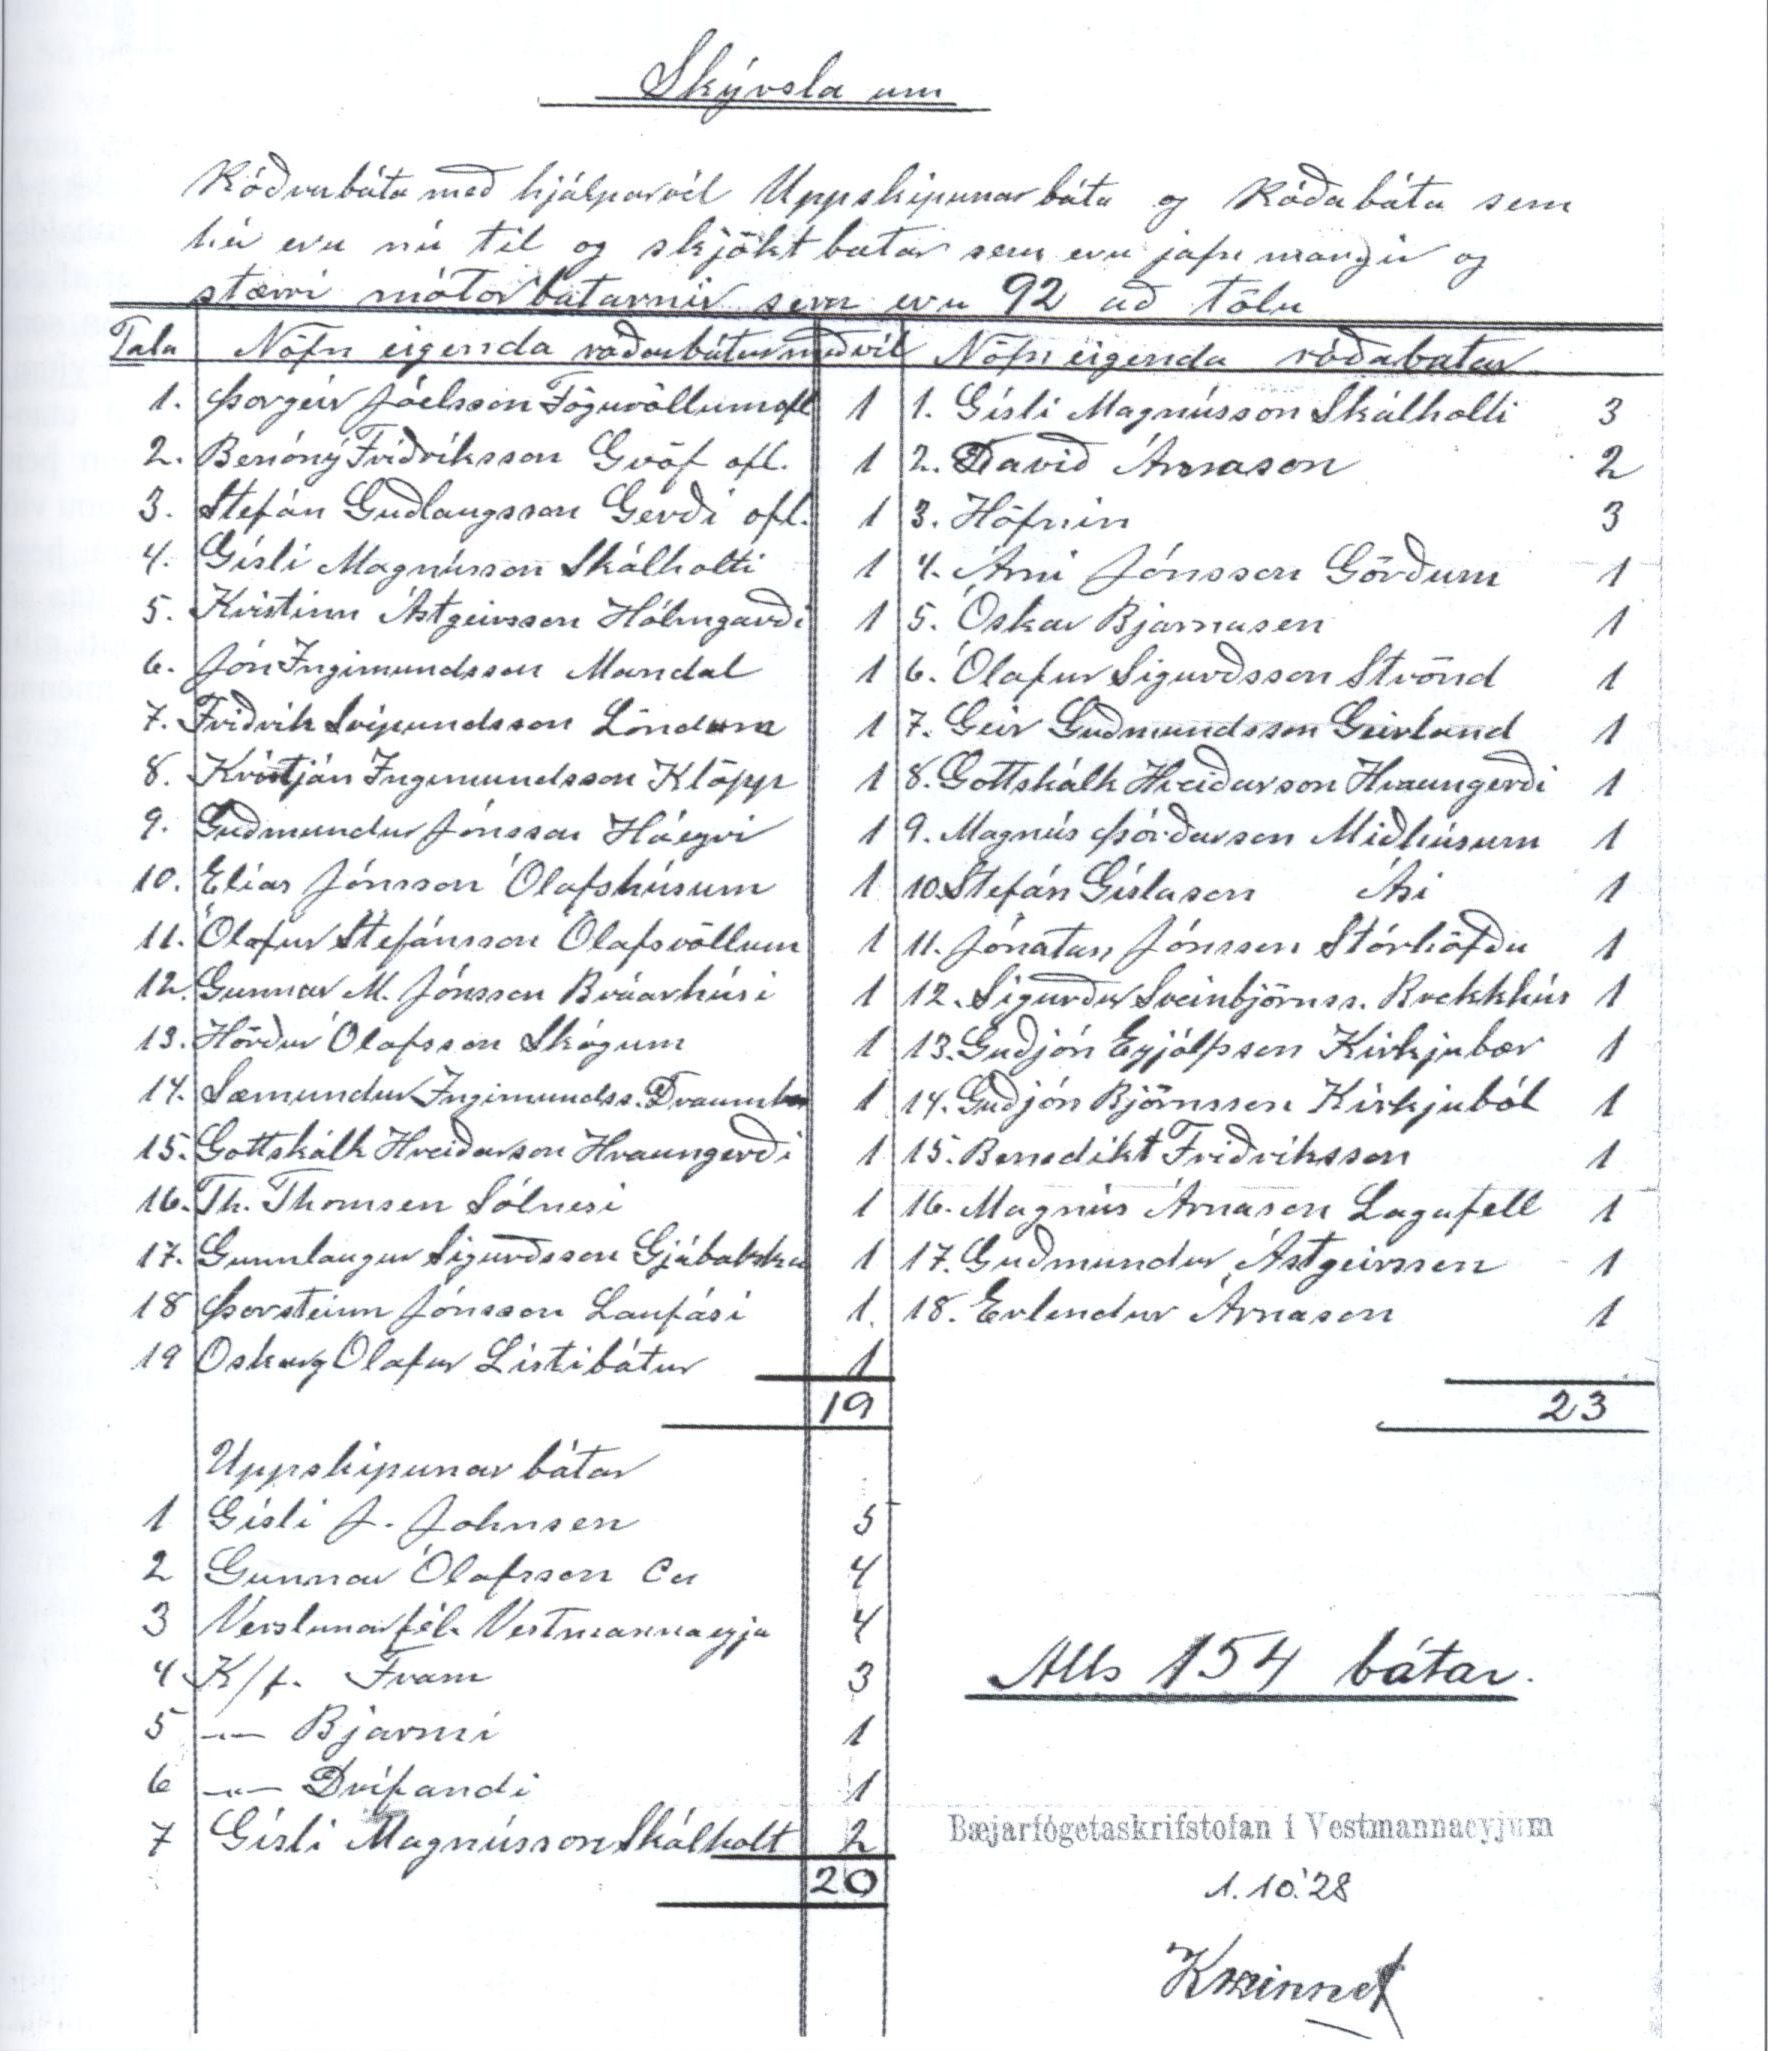 Skýrsla um
Róðrarbáta með hjálparvél Uppskipunarbáta og Róðabáta sem
hér eru nú til og skjöktbatar sem eru jafn margir og
stærri mótorbatarnir sem eru 92 að tölu
Tala Nöfn eigenda roðrarbátur með vél Nöfn eigenda róðabatar
1. Þorgeir Jóelsson Fögruvöllum ofl 1 1. Gísli Magnússon Skálholti 3
2. Benóný Friðriksson Gröf ofl. 1 2. Davið Árnason 2
3. Stefán Guðlaugsson Gerði ofl. 1 3. Höfnin 3
4. Gísli Magnússon Skálholti 1 4. Árni Jónsson Görðum 1
5. Kristinn Ástgeirsson Hólmgarði 1 5. Óskar Bjarnasen 1
6. Jón Ingimundsson Mandal 1 6. Ólafur Sigurðsson Strönd 1
7. Friðrik Svipmundsson Löndum 1 7. Geir Guðmundsson Geirland 1
8. Kristján Ingimundsson Klöpp 1 8. Gottskálk Hreiðarson Hraungerði 1
9. Guðmundur Jónsson Háeyri 1 9. Magnús Þórðarson Miðhúsum 1
10. Elías Jónsson Ólafshúsum 1 10. Stefán Gíslason Ási 1
11. Ólafur Stefánsson Ólafsvöllum 1 11. Jónatan Jónsson Stórhöfða 1
12. Gunnar M. Jónsson Brúarhúsi 1 12. Sigurður Sveinbjörnss. Brekkhús 1
13. Hörður Ólafsson Skógum 1 13. Guðjón Eyjólfsson Kirkjubær 1
14. Sæmundur Ingimundss. 1 14. Guðjón Björnsson Kirkjuból 1
15. Gottskálk Hreiðarson Hraungerði 1 15. Benedikt Friðriksson 1
16. Th. Thomsen Sólnesi 1 16. Magnús Árnason Lagafell 1
17. Gunnlaugur Sigurðsson Gjábakka 1 17. Guðmundur Ástgeirssen 1
18 Þorsteinn Jónsson Laufási 1. 18. Erlendur Árnason 1
19 Oskar og Ólafur Listibátur 1
19 23
Uppskipunar bátar
1 Gísli J. Johnsen 5
2 Gunnar Ólafsson Co 4
3 Verslunarfél. Vestmannaeyja 4
4 K/f. Fram 3
5 —"— Bjarmi 1
6 —"— Drífandi 1
7 Gísli Magnússon Skálholt 2
20
Alls 154 bátar.
Bæjarfógetaskrifstofan í Vestmannaeyjum
1.10.'28